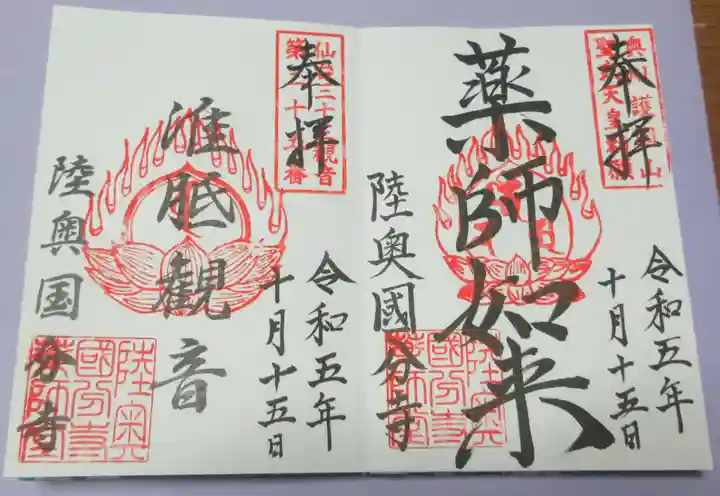 奉拝
薬師如来
陸奥國分寺
令和五年
十月十五日
陸奥
國分寺
薬師堂
奉拝
准胝觀音
陸奥国分寺
令和五年
十月十五日
陸奥
國分寺
薬師堂